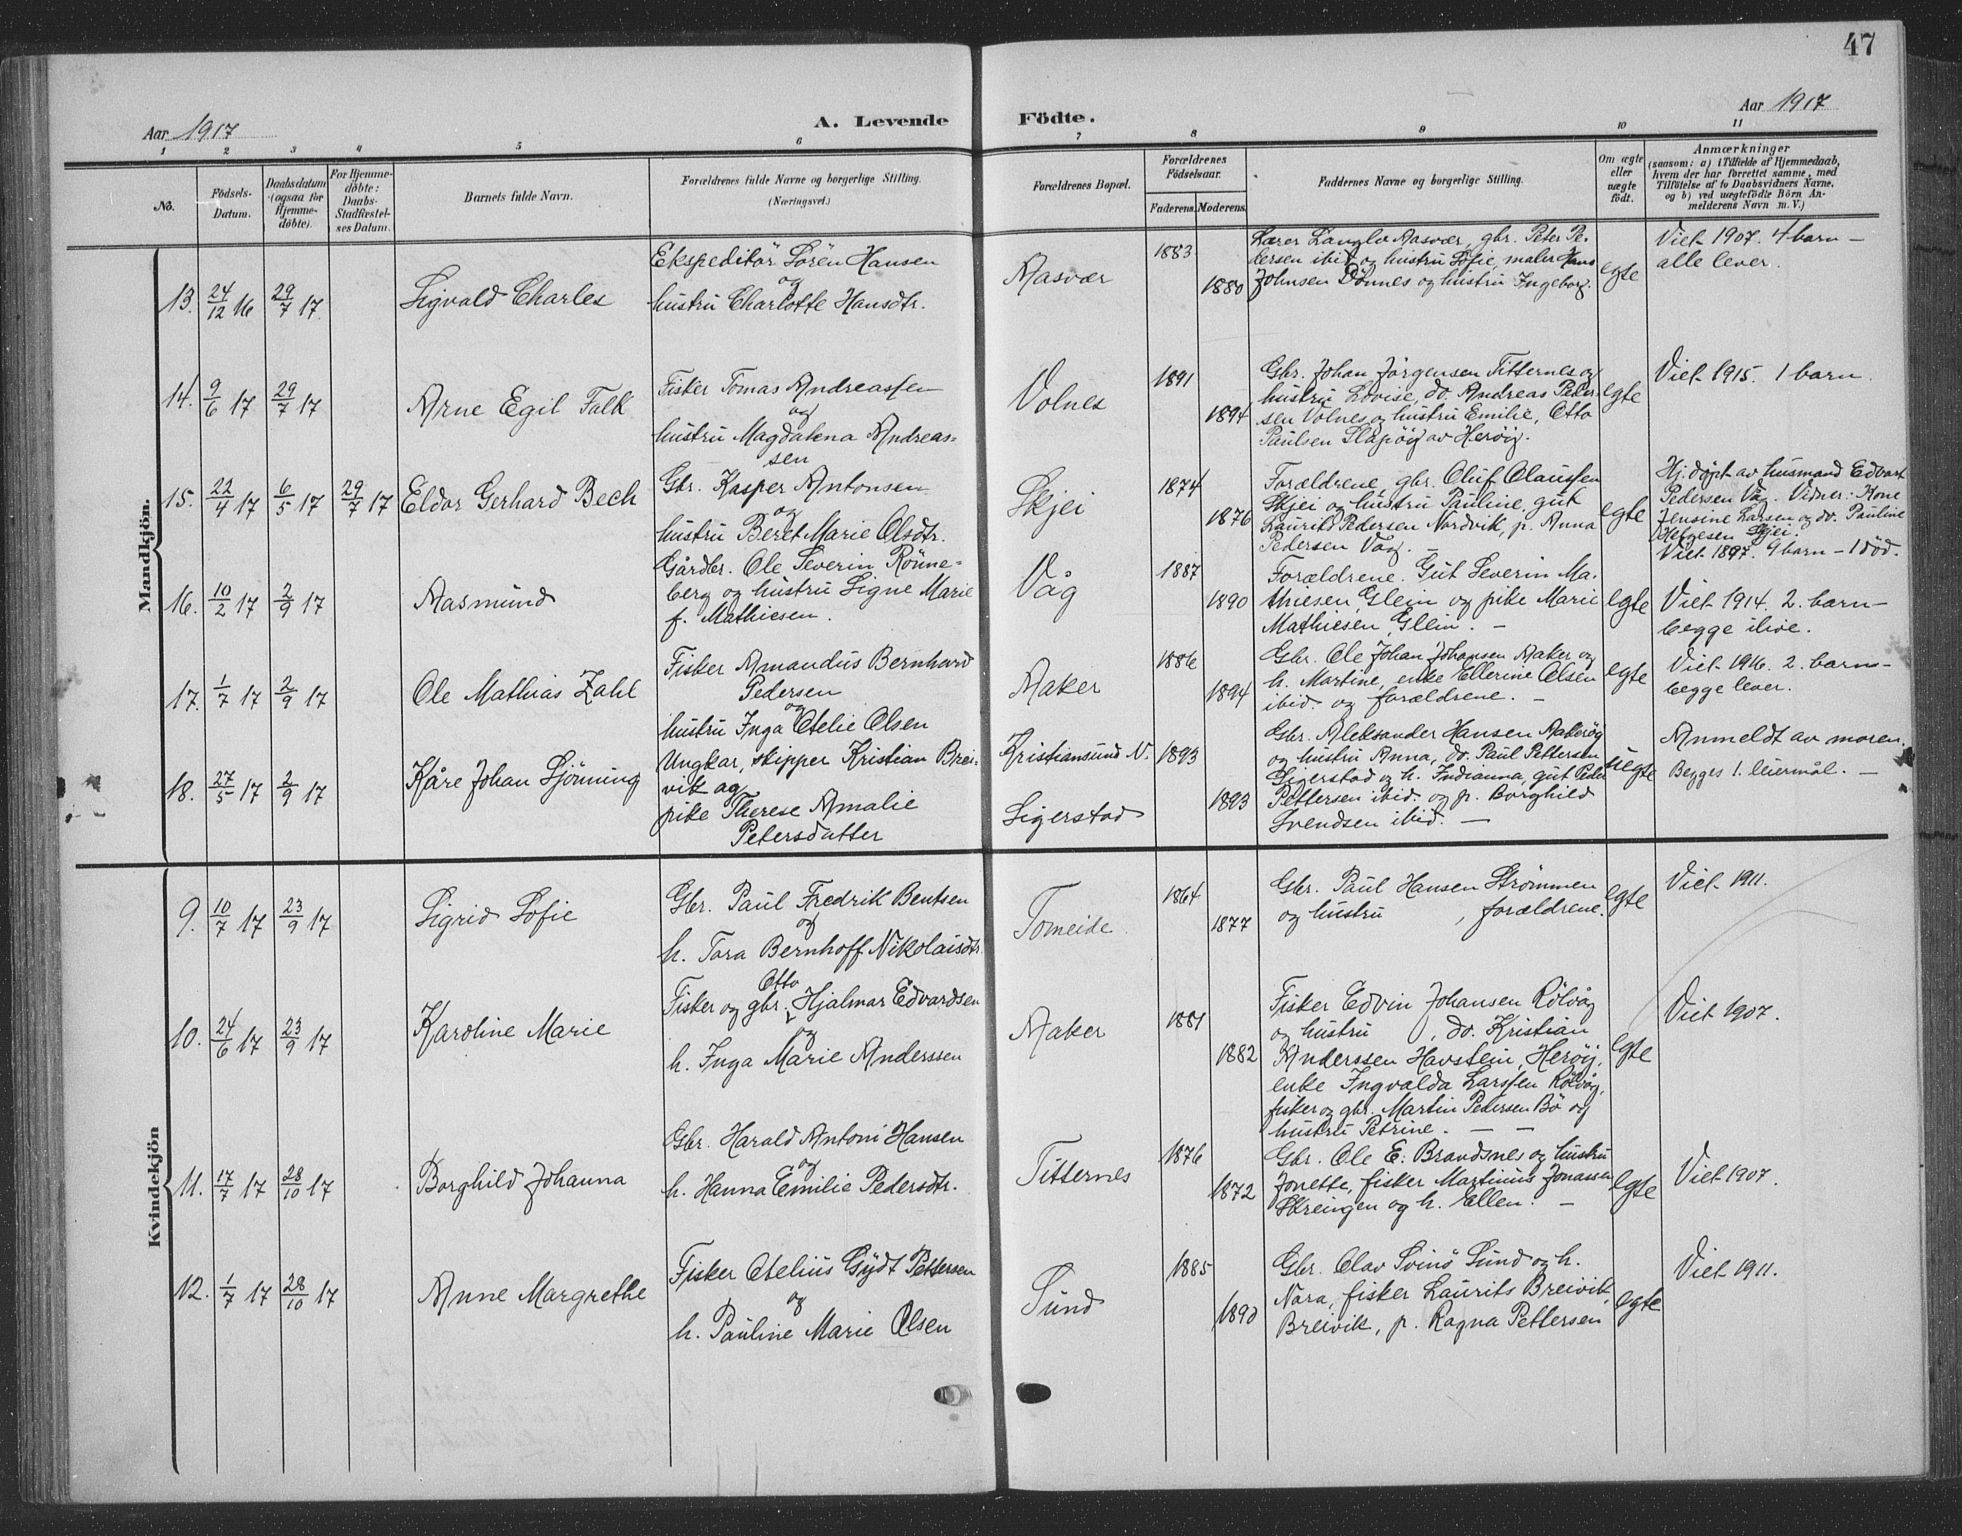 47
Aar 1917
A. Levende Födte.
Aar 1917
1 2 3 4 5 6 7 8 9 10 11
No.
Födsels-
Datum.
Daabsdatum
(ogsaa for
Hjemme-
döbte).
For Hjemme-
döbte:
Daabs-
Stadfæstel-
ses Datum.
Barnets fulde Navn.
Forældrenes fulde Navne og borgerlige Stilling.
(Næringsvei.)
Forældrenes Bopæl.
Forældrenes
Födselsaar.
Faderens. Moderens.
Faddernes Navne og borgerlige Stilling.
Om ægte
eller
uægte
födt.
Anmærkninger
(saasom: a) i Tilfælde af Hjemmedaab,
hvem der har forrettet samme, med
Tilföielse af to Daabsvidners Navne,
og b) ved uægtefödte Börn An-
melderens Navn m. V.)
Mandkjön.
13. 24/12 16 29/7 17. Sigvald Charles
Ekspeditör Sören Hansen
og
hustru Charlotte Hansdtr.
Aasvær
1883
1880
Lærer Langlo Aasvær, gbr. Peter Pe-
dersen ibid og hustru Sofie, maler Hans
Johnsen Dönnes og hustru Ingeborg.
egte
Viet 1907. 4 barn –
alle lever.
14. 9/6 17 29/7 17 Arne Egil Falk
Fisker Tomas Andreassen
og
hustru Magdalena Andreas-
sen
Volnes
1891
1894
Gbr. Johan Jörgensen Titternes og
hustru Lovise, do. Andreas Peder-
sen Volnes og hustru Emilie, Otto
Paulsen Slapöig av Heröig.
egte
Viet 1915. 1 barn.
15. 22/4 17 6/5 17 29/7 17 Eldor Gerhard Bech
Gbr. Kasper Antonsen
og
hustru Beret Marie Olsdtr.
Skjei
1874
1876
Forældrene, gbr. Oluf Olaussen
Skjei og hustru Pauline, gut
Laurits Pedersen Nordvik, p. Anna
Pedersen Våg. –
egte
Hj. döpt av husmand Edvart
Pedersen Våg. Vidner: Kone
Jensine Larsen og do. Pauline
Helgesen Skjei.
Viet 1897. 9 barn – 1 död.
16. 10/2 17 2/9 17 Aasmund
Gårdbr. Ole Severin Rönne-
berg og hustru Signe Marie
f. Mathiesen.
Våg
1887
1890
Forældrene. Gut Severin Ma-
thiesen, Glein og pike Marie
Mathiesen, Glein. –
egte
Viet 1914. 2. barn –
begge ilive.
17. 1/7 17 2/9 17 Ole Mathias Zahl
Fisker Amandus Bernhard
Pedersen
og
hustru Inga Otelie Olsen
Aaker
1886
1894
Gbr. Ole Johan Johansen Aaker og
h. Martine, enke Ellerine Olsen
ibid. og forældrene. –
egte
Viet 1916. 2. barn –
begge lever.
18. 27/5 17 2/9 17 Kåre Johan Sjönning
Ungkar, skipper Kristian Brei-
vik og
pike Therese Amalie
Petersdatter
Kristiansund N.
Sigerstad
1893
1893
Gbr. Aleksander Hansen Aakerög
og hustru Anna, do. Paul Pettersen
Sigerstad og h. Indianna, gut Peder
Pettersen ibid. og p. Borghild
Svendsen ibid. –
uegte
Anmeldt av moren.
Begges 1. leiermål. –
Kvindekjön
9. 10/7 17 23/9 17 Sigrid Sofie
Gbr. Paul Fredrik Bentsen
og
h. Tora Bernhoff Nikolaisdtr.
Tomeide
1864
1877
Gbr. Paul Hansen Strömmen
og hustru , forældrene.
egte
Viet 1911.
10. 24/6 17 23/9 17 Karoline Marie
Otto
Fisker og gbr. Hjalmar Edvardsen
og
h. Inga Marie Anderssen
Aaker
1881
1882
Fisker Edvin Johansen Rölvåg
og hustru , do. Kristian
Anderssen Havstein, Heröig,
enke Ingvalda Larssen Rölvåg,
fisker og gbr. Martin Pedersen Bö og
hustru Petrine. – –
egte
Viet 1907.
11. 17/7 17 28/10 17 Borghild Johanna
Gbr. Harald Antoni Hansen
og
h. Hanna Emilie Pedersdtr.
Titternes
1876
1872
Gbr. Ole E. Brandsnes og hustru
Jonette, fisker Martinus Jonassen
Skreingen og h. Ellen. –
egte
Viet 1907.
12. 1/7 17 28/10 17 Anne Margrethe
Fisker Otelius Gydt Pettersen
og
h. Pauline Marie Olsen
Sund
1885
1890
Gbr. Olav Svinö Sund og h.
Nora, fisker Laurits Breivik,
Breivik, p. Ragna Pettersen
egte
Viet 1911.